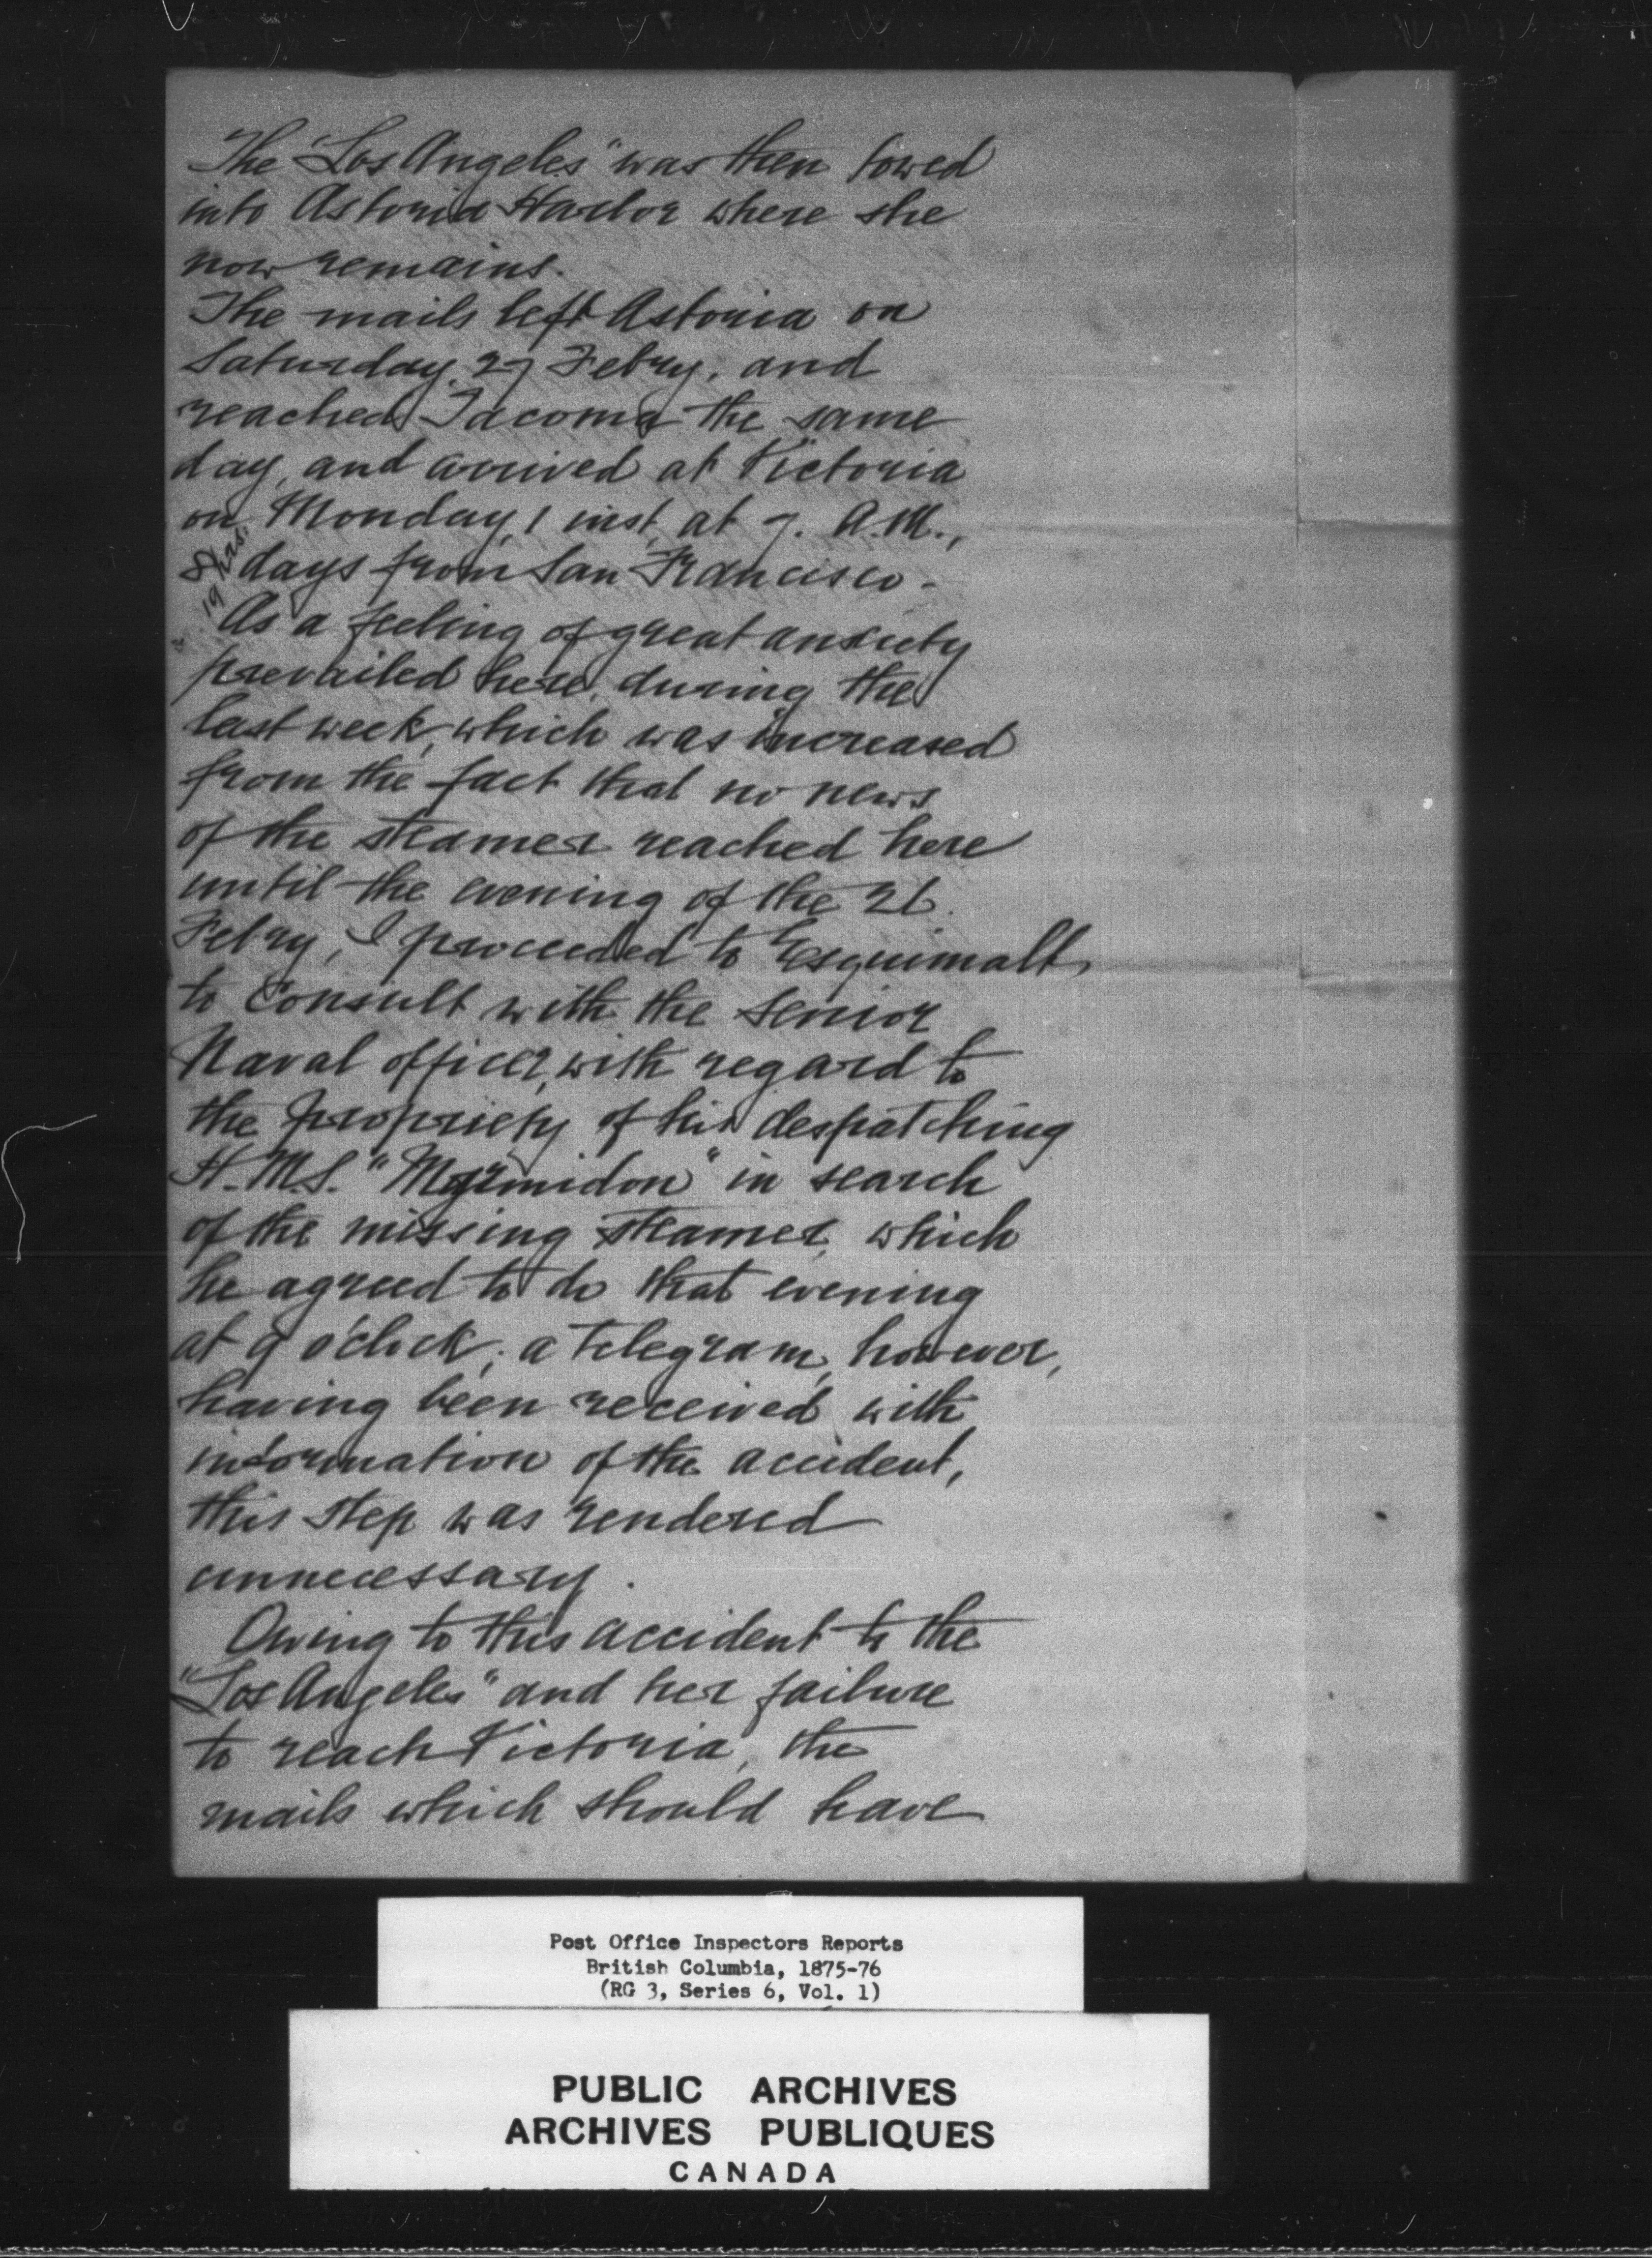 The "Los Angeles" was then towed
into Astoria Harbor where she
now remains.
The mails left Astoria on
Saturday, 27 Febry, and
reached Tacoma the same
day, and arrived at Victoria
on Monday, 1 inst, at 7. A.M.,
8 days 19 hrs. from San Francisco.
As a feeling of great anxiety
prevailed here, during the
last week, which was increased
from the fact that no news
of the steamer reached here
until the evening of the 26.
Febry, I proceeded to Esquimalt,
to Consult with the Senior
Naval officer, with regard to
the propriety of his despatching
H.M.S. "Myrmidon" in search
of the missing steamer, which
he agreed to do that evening
at 9 o'clock; a telegram, however,
having been received with
information of the accident,
this step was rendered
unnecessary.
Owing to this accident to the
"Los Angeles" and her failure
to reach Victoria, the
mails which should have
Post Office Inspectors Reports
British Columbia, 1875-76
(RG 3, Series 6, Vol. 1)
PUBLIC ARCHIVES
ARCHIVES PUBLIQUES
CANADA